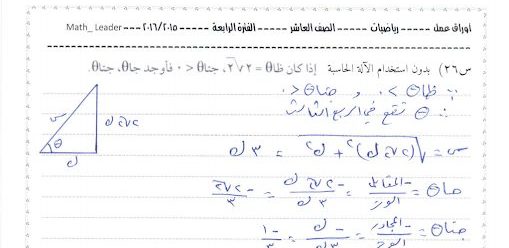 أوراق عمل ----- رياضيات ----- الصف العاشر ----- الفترة الرابعة ----- ٢٠١٦/٢٠١٥ ----- Math_Leader
س٢٦) بدون استخدام الآلة الحاسبة إذا كان ظاθ = ٢√٢ ، جتاθ < ٠ فأوجد جاθ، جتاθ.
∵ ظاθ > ٠ و جتاθ < ٠
∴ θ تقع في الربع الثالث
س = √(٢√٢ ك)² + ك² = ٣ ك
جاθ = -المقابل / الوتر = -٢√٢ ك / ٣ ك = -٢√٢ / ٣
جتاθ = -المجاور / الوتر = -ك / ٣ ك = -١ / ٣
س
٢√٢ ك
θ
ك